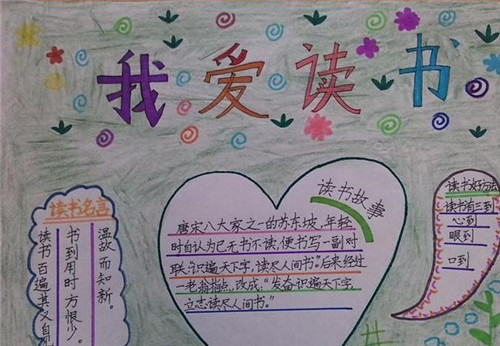 我爱读书
读书名言
温故而知新。
书到用时方恨少。
读书百遍其义自见
读书故事
唐宋八大家之一的苏东坡,年轻
时自认为已无书不读,便书写一副对
联,"识遍天下字,读尽人间书。"后来经过
一老翁指点,改成:"发奋识遍天下字
立志读尽人间书。"
读书好方法
读书有三到
心到
眼到
口到